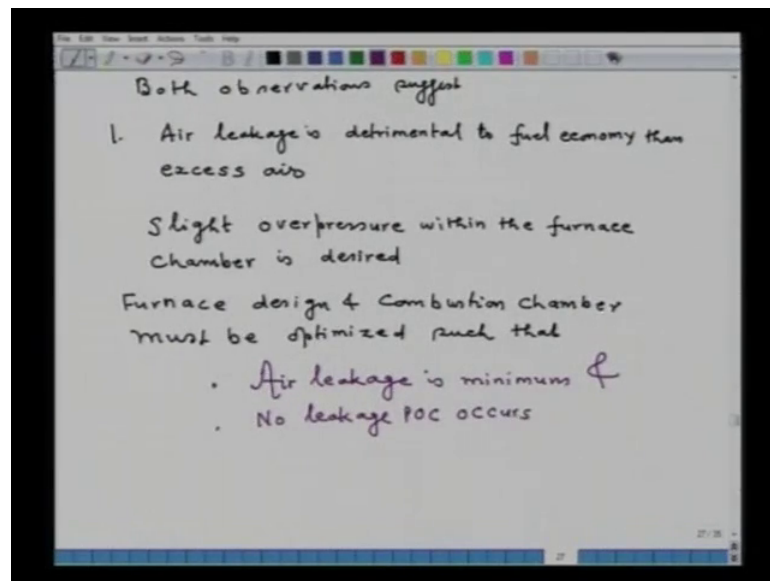 File Edit View Insert Actions Tools Help
Both observations suggest
1. Air leakage is detrimental to fuel economy than
excess air
Slight overpressure within the furnace
chamber is desired
Furnace design & Combustion chamber
must be optimized such that
. Air leakage is minimum &
. No leakage POC occurs
27